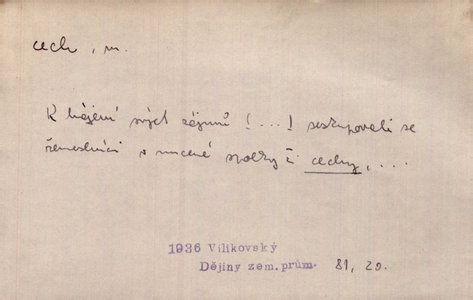 cech, m.
K hájení svých zájmů /.../ seskupovali se
řemeslníci v nucené spolky či cechy, ...
1936 Vilikovský
Dějiny zem. prům. 81, 20.